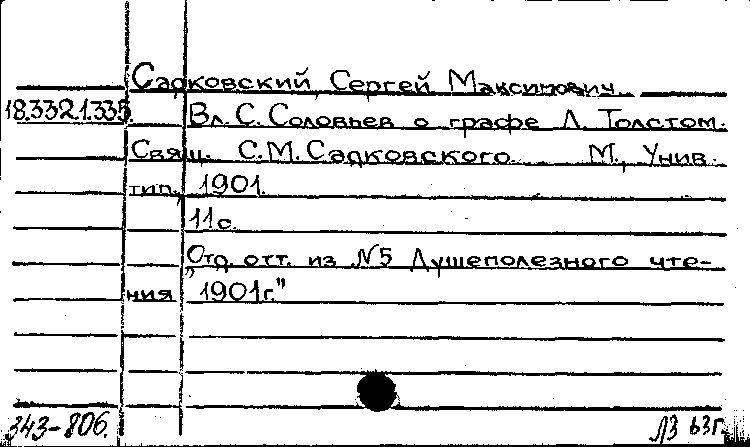 Садковский, Сергей Максимович.
18.332.1.335 Вл. С. Соловьев о графе Л. Толстом.
Свящ. С.М. Садковского. М., Унив.
тип., 1901.
11 с.
Отд. отт. из №5 „Душеполезного чте-
ния 1901г."
343-806. ЛЗ 63г.